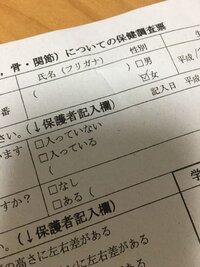 ，骨・関節）についての保健調査票
氏名（フリガナ） 性別
（ ） □男
☑女
番 記入日 平成
さい。（↓保護者記入欄）
ます □入っていない
□入っている
（
□なし
すか？ □ある（
い。（↓保護者記入欄）
の高さに左右差がある
に左右差がある